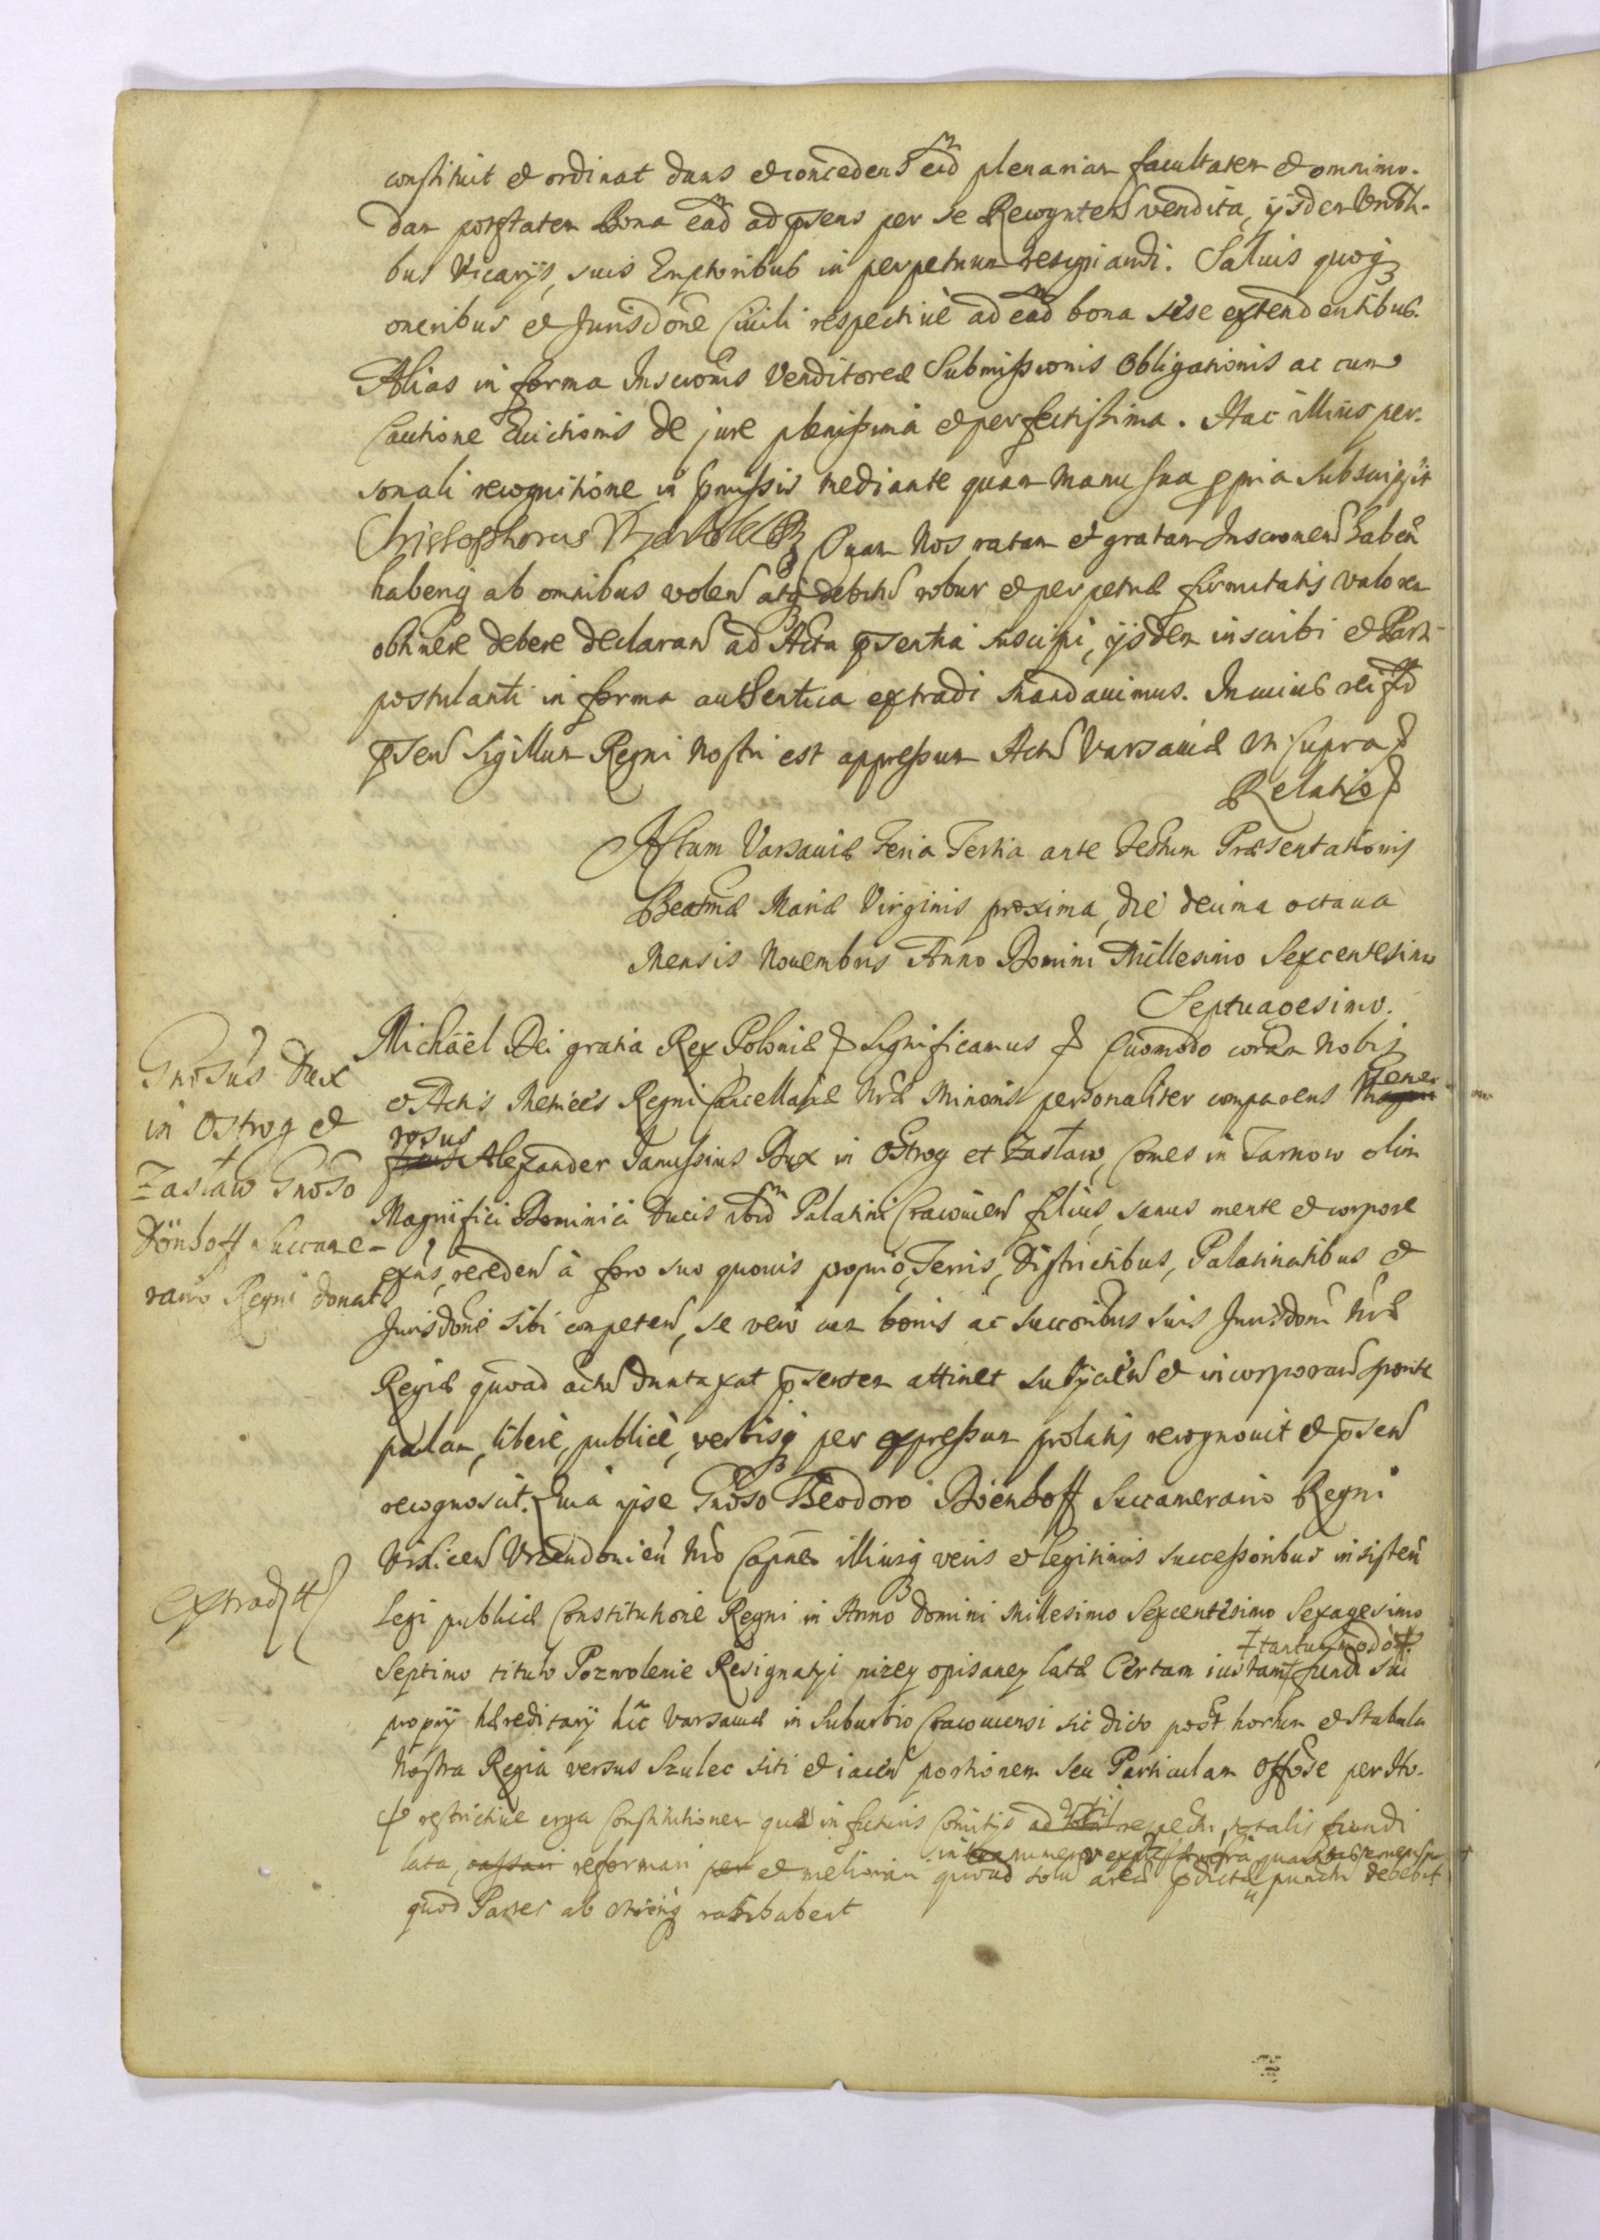 constituit et ordinat dans et concedens eid plenariam facultatem et omnimo-
dam potstatem Bona ead ad psens per se Recogntem vendita, ijsdem Vnbli-
bus Vicarijs, suis Emptoribus in perpetuum resignandi. Saluis quoq
oneribus et Jurisdone Ciuili respectiue ad ead bona sese extendentibus.
Alias in forma Inscronis Venditoreæ Submissionis Obligationis ac cum
Cautione Euictionis de jure plenissima et perfectissima. Hac illius per-
sonali recognitione in pmissis mediante quam manu sua ppria subscripsit
Christophorus
Quam Nos ratam et gratam Inscronem haben
haberiq ab omnibus volen atq debitu robur et perpetuæ firmitatis valorem
obtinere debere declaran ad Acta psentia suscipi, ijsdem inscribi et Parti
postulanti in forma authentica extradi mandauimus. In cuius rei fid
psen Sigillum Regni Nostri est appressum Actu Varsauiæ vt supra
Relatio
Actum Varsauiæ Feria Tertia ante Festum Præsentationis
Beatmæ Mariæ Virginis proxima, die decima octaua
Mensis Nouembris Anno Domini Millesimo Sexcentesimo
Septuagesimo.
Gnosus Dux
in Ostrog et
Zasław Gnoso
Dönhoff Succame-
rario Regni donat
Michaël Dei gratia Rex Poloniæ Significamus Quomodo coram Nobis
et Actis Metrices Regni Cancellariæ Nræ Minoris personaliter comparens Gene-
rosus Alexander Janussius Dux in Ostrog et Zasław, Comes in Tarnow olim
Magnifici Dominici Ducis ibid Palatini Cracouien filius, sanus mente et corpore
exns, receden à foro suo quouis proprio, Terris, Districtibus, Palatinatibus et
Jurisdone sibi competen, se vero cum bonis ac succoribus suis Jurisdoni Nræ
Regiæ quoad actu duntaxat psentem attinet subijcien et incorporan sponte
palam, liberè, publicè, verbisq per expressum prolatis recognouit et psen
recognoscit. Quia ipse Gnoso Theodoro Döenhoff Succamerario Regni
Vislicen Vrzendouien Nro Capneo illiusq veris et legitimis successoribus insisten
extrad
Legi publicæ Constitutione Regni in Anno Domini Millesimo Sexcentesimo Sexagesimo
Septimo titulo Pozwolenie Resignatyi nizey opisaney latæ Certam iustam tantummodo fundi sui
proprij hæreditarij hic Varsauiæ in Suburbio Cracouiensi sic dicto post hortum et Stabula
Nostra Regia versus Szulec siti et iacen portionem seu Particulam
restrictiue erga Constitutionem quæ in futuris Comitijs respectu totalis fundi
lata, cassari reformari et meliorari quoad debebit
quod Partes ab